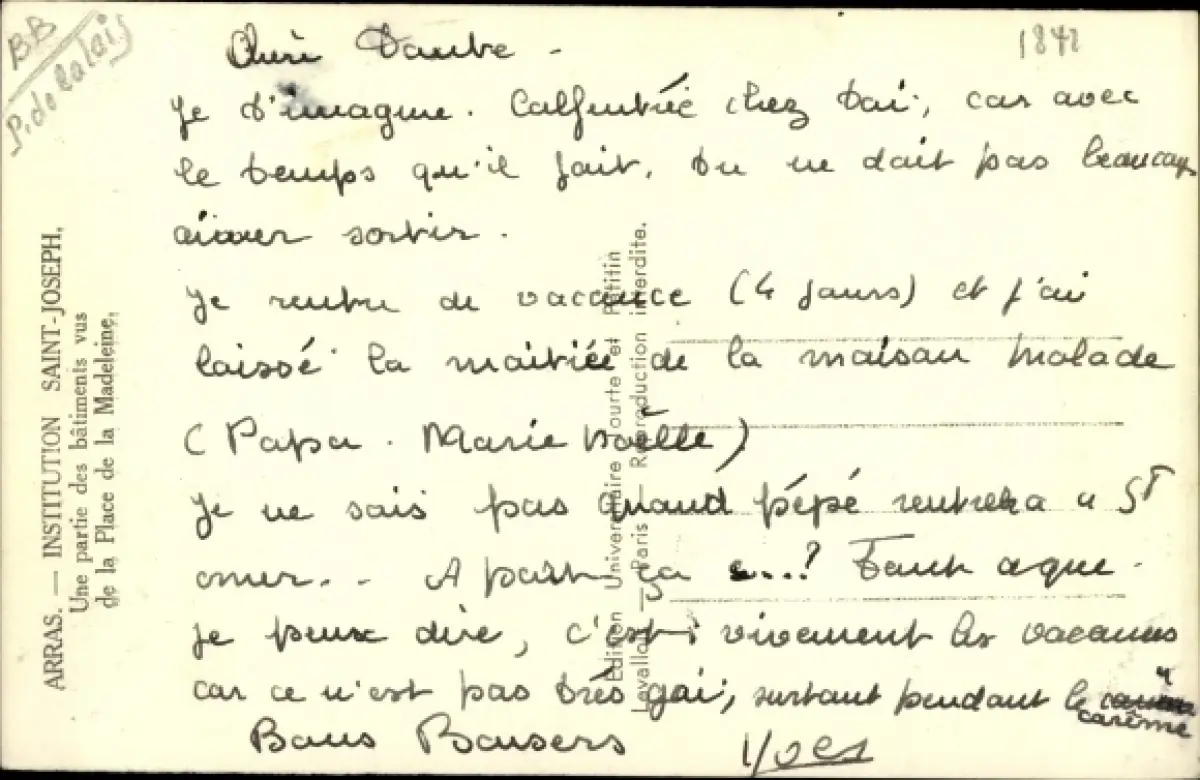 BB
P. de Calais
1842
Chère Tante -
Je t'imagine. Calfeutrée chez toi, car avec
le temps qu'il fait, tu ne doit pas beaucoup
aimer sortir.
Je rentre de vacance (4 jours) et j'ai
laissé la moitiée de la maison malade
(Papa. Marie Noëlle)
Je ne sais pas quand pépé rentrera a St
omer. . A part ça ...? Tout ce que
je peux dire, c'est : vivement les vacances
car ce n'est pas très gai, surtout pendant le
"carême
Bons Baisers Yves
ARRAS. — INSTITUTION SAINT-JOSEPH.
Une partie des bâtiments vus
de la Place de la Madeleine.
Edition Universitaire Tourte et Petitin
Levallois — Paris — Reproduction interdite.